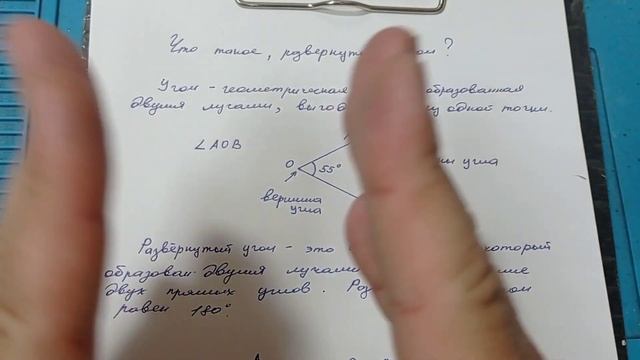 Что такое, разверну ом?
Угол - геометрическая образованная
двумя лучами, выход у одной точки.
∠AOB
O 55° ны угла
вершина
угла
Развёрнутый угол - это который
образован двумя лучами ние
двух прямых углов. Раз ом
равен 180°.